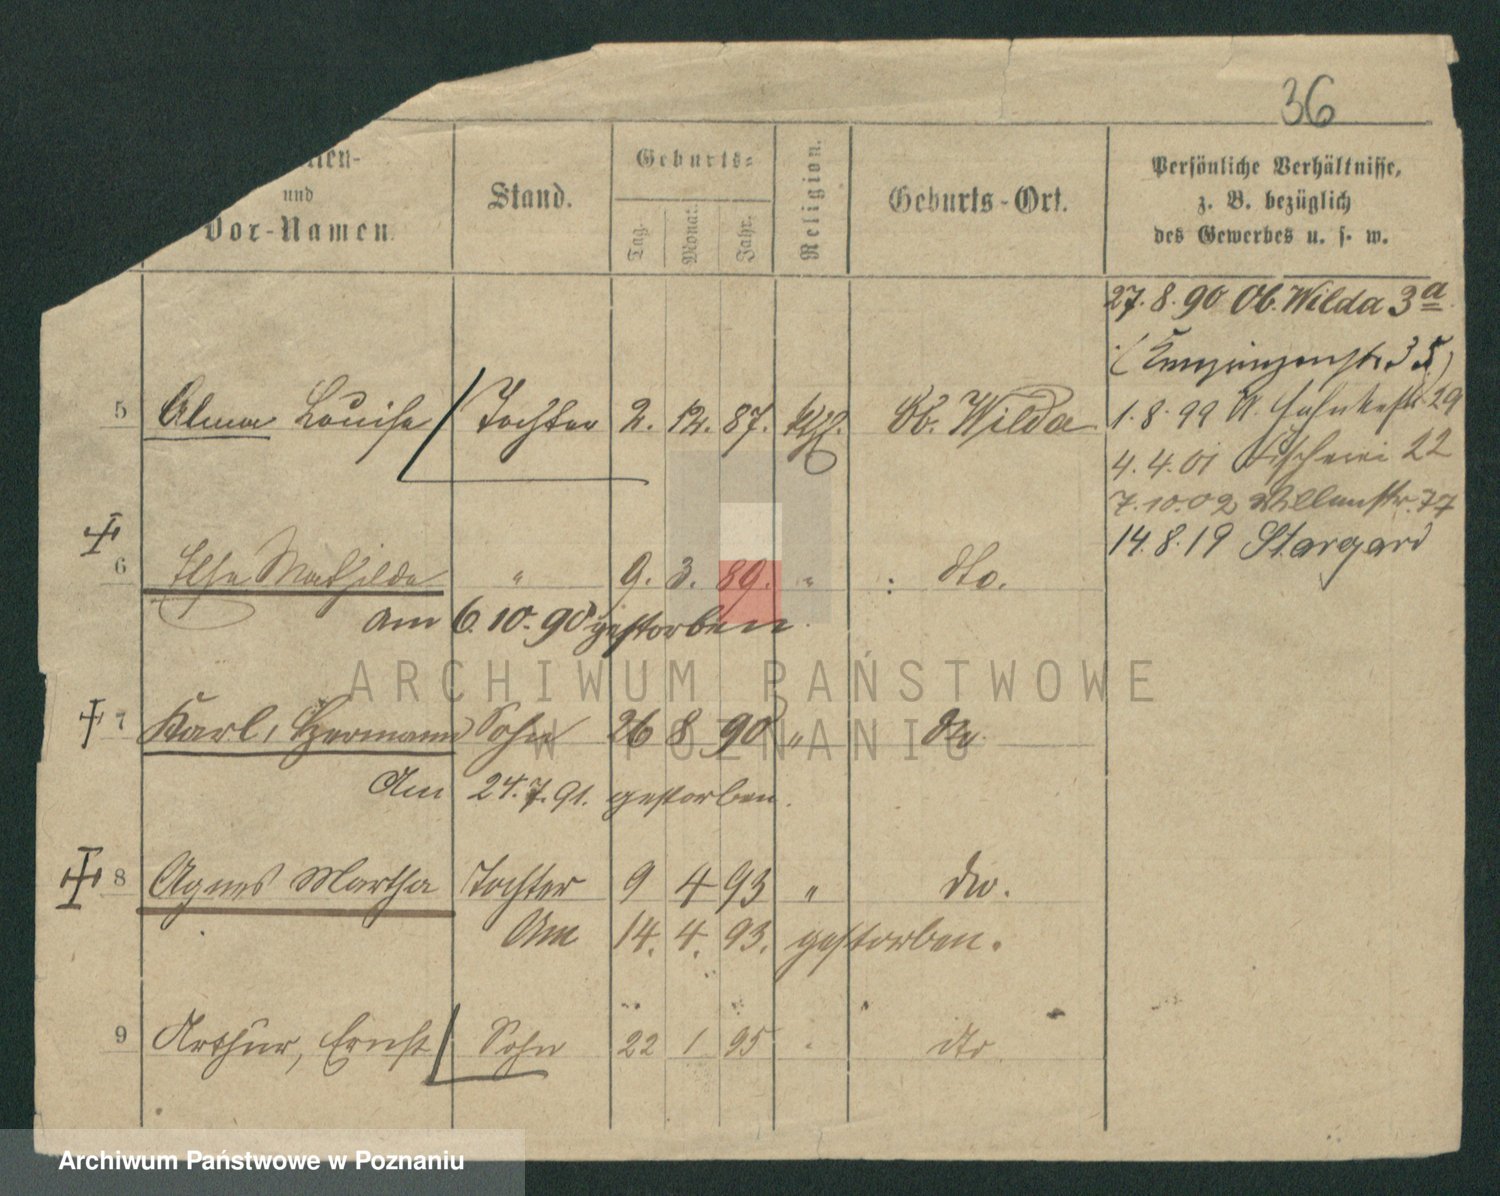 36
und
Vor-Namen.
Stand.
Geburts-
Tag.
Monat.
Jahr.
Religion.
Geburts-Ort.
Persönliche Verhältnisse,
z. B. bezüglich
des Gewerbes u. s. w.
27. 8. 90 Ob. Wilda 3a
35)
5 Alma Louise Tochter 2. 12. 87. Ob. Wilda
1. 8. 99 29
4. 4. 01 22
7. 10. 02 77
14. 8. 19 Stargard
6 Else Mathilde " 9. 3. 89. " dto.
am 6. 10. 90 gestorben.
7 Karl, Hermann Sohn 26 8 90 " dto
Am 24. 7. 91. gestorben.
8 Agnes Martha Tochter 9 4 93 " dto.
Am 14. 4. 93. gestorben.
9 Arthur, Ernst Sohn 22 1 95 dto
ARCHIWUM PAŃSTWOWE
W POZNANIU
Archiwum Państwowe w Poznaniu